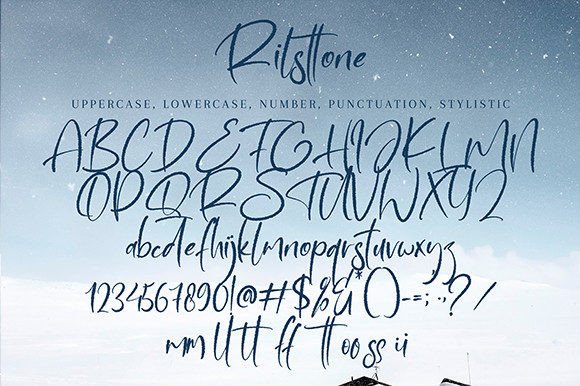 Ritsttone
UPPERCASE, LOWERCASE, NUMBER, PUNCTUATION, STYLISTIC
ABCDEFGHIJKLMN
OPQRSTUVWXYZ
abcdefhijklmnopqrstuvwxyz
1234567890!@#$%&*()-=;:.,?/
mm ll tt ff tt oo ss ii